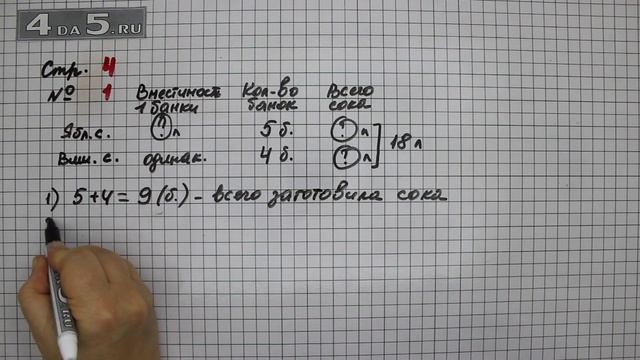 4 DA 5.RU
Стр. 4
№ 1 Вместимость 1 банки Кол-во банок Всего сока
Ябл. с. ? л 5 б. ? л
Виш. с. одинак. 4 б. ? л 18 л
1) 5+4=9(б.) - всего заготовила сока